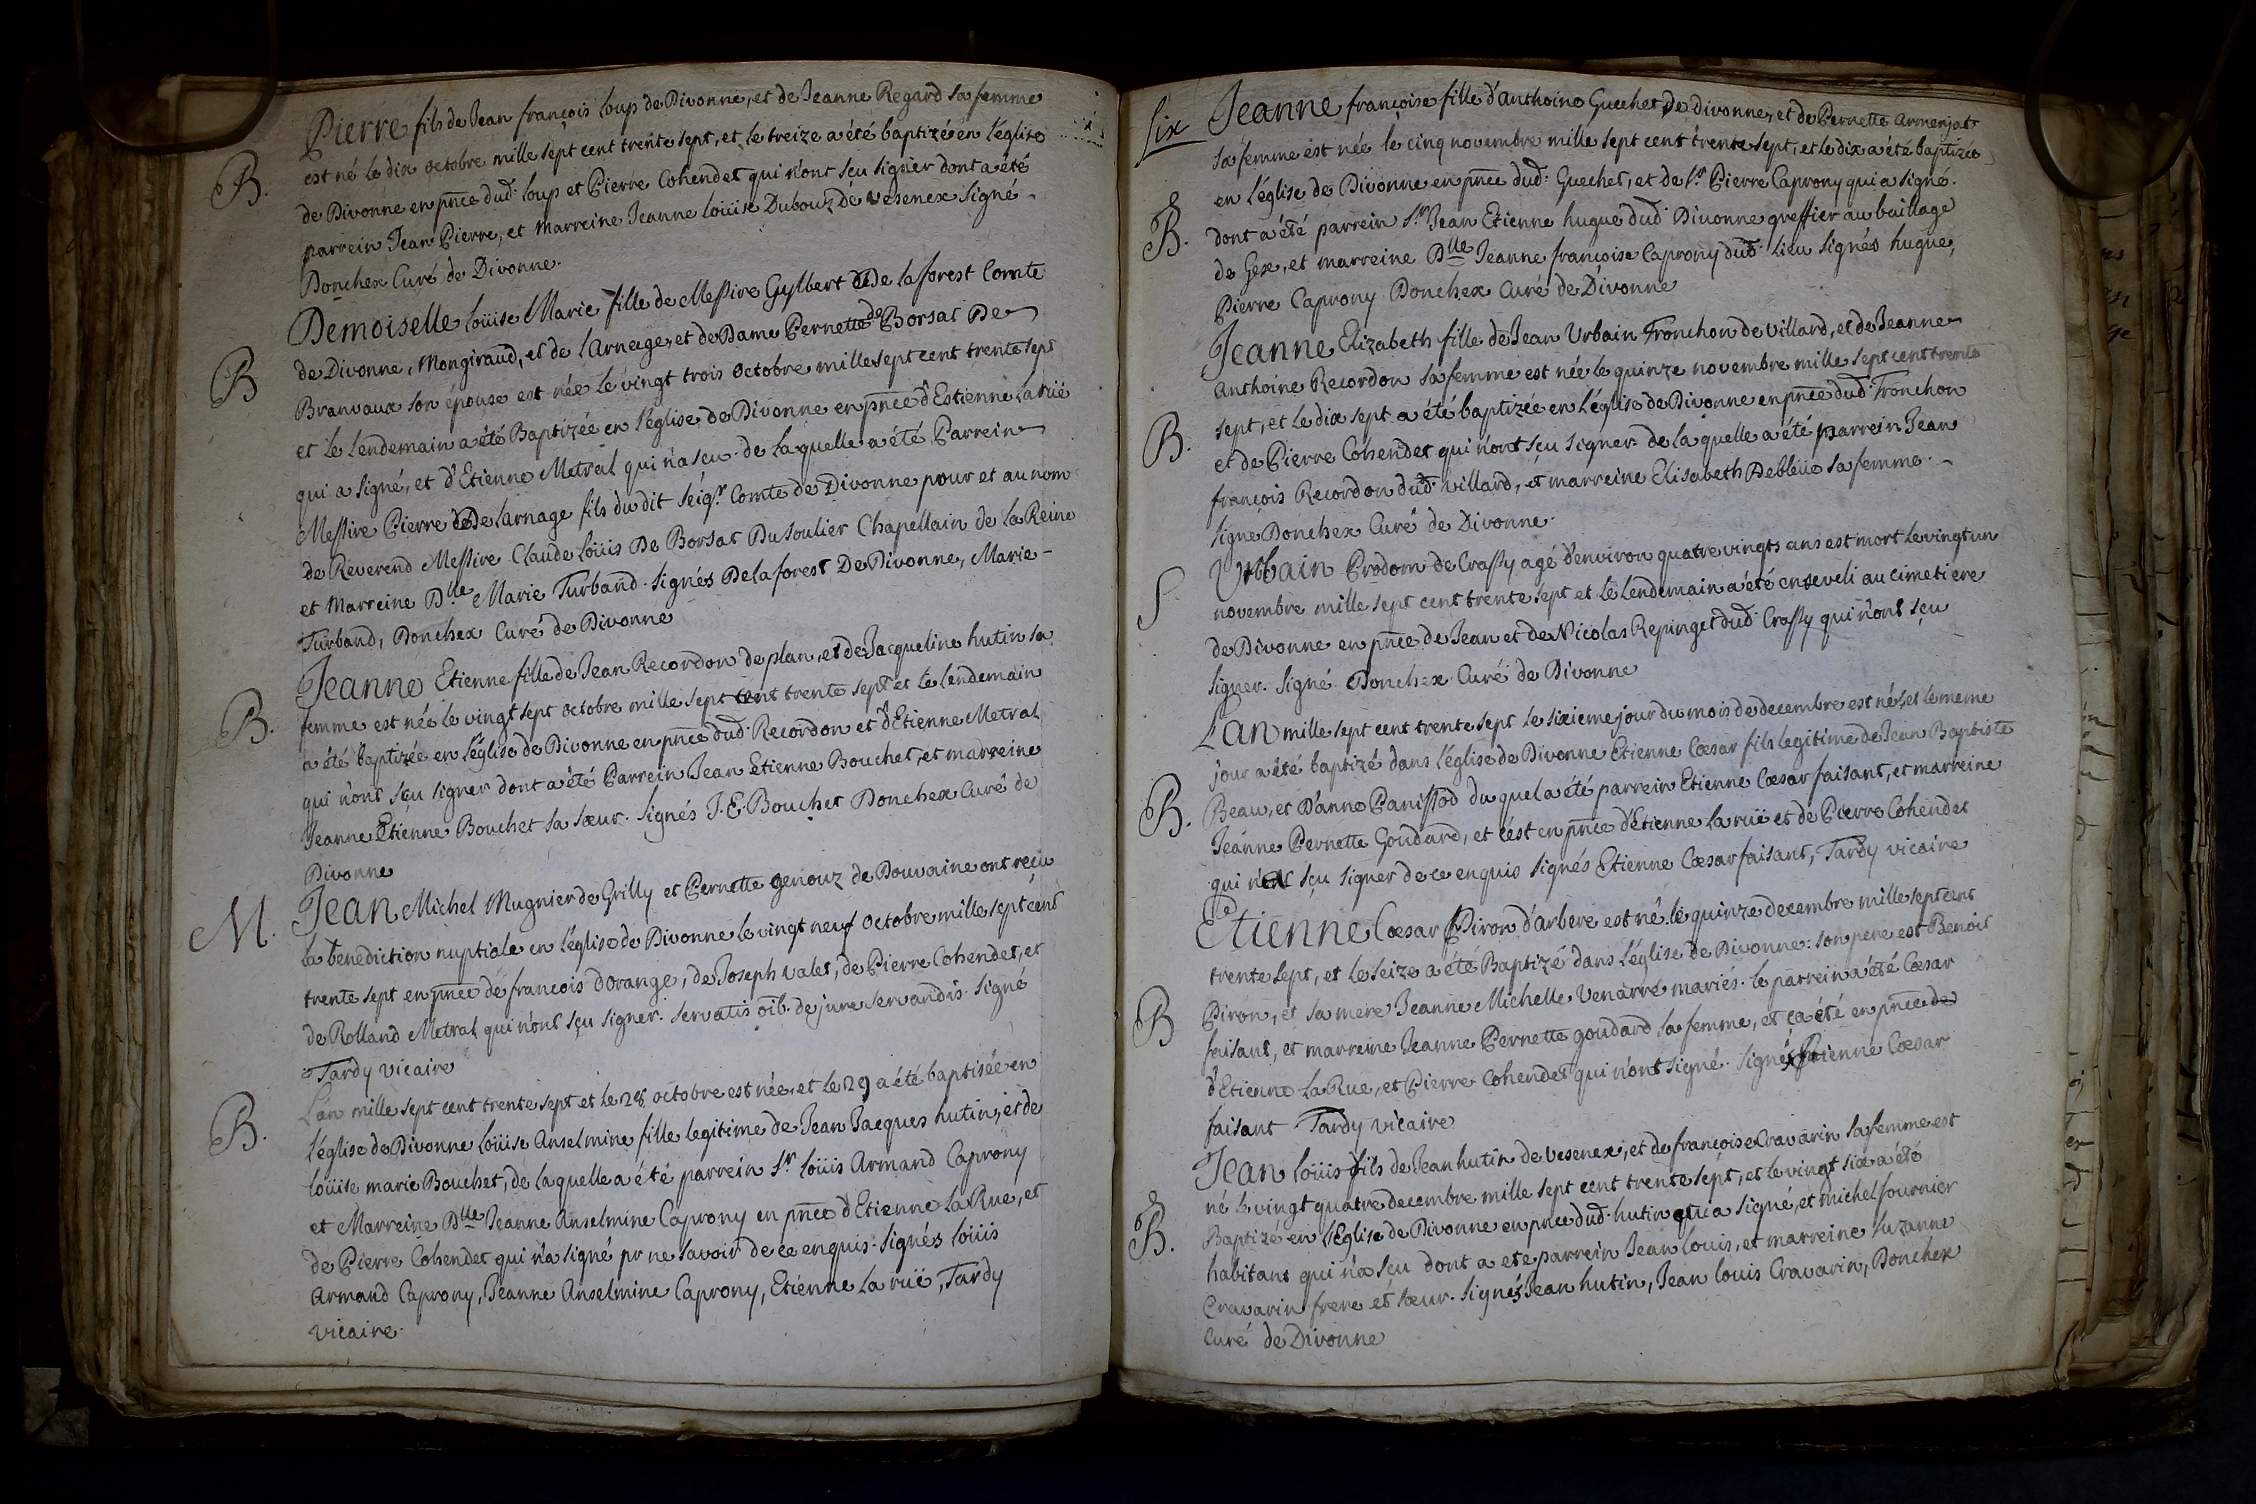 Pierre fils de Jean françois loup de Divonne, et de Jeanne Regard sa femme
B. est né le dix octobre mille sept cent trente sept, et le treize a été baptizé en l'église
de Divonne en pñce dud. loup et Pierre Cohendet qui n'ont sçu signer dont a été
parrein Jean Pierre, et marreine Jeanne loüise Dubouz de vesenex signé
Donchex Curé de Divonne.
Demoiselle loüise Marie fille de Messire Gylbert De laforest Comte
B de Divonne, Mongiraud, et de larnage, et de Dame Pernette de Borsat De
Branvaux son épouse est née le vingt trois octobre mille sept cent trente sept
et le lendemain a été Baptizée en l'église de Divonne en pñce d'Estienne la Rüe
qui a signé, et d'Etienne Metral qui n'a sçu. de laquelle a été Parrein
Messire Pierre De larnage fils du dit seigr. Comte de Divonne pour et au nom
de Reverend Messire Claude loüis De Borsat Du soulier Chapellain de la Reine
et Marreine Dlle Marie Turband. signés Delaforest De Divonne, Marie
Turband, Donchex Curé de Divonne
Jeanne Etienne fille de Jean Recordon de plan, et de Jacqueline hutin sa
B. femme est née le vingt sept octobre mille sept cent trente sept et le lendemain
a été baptizée en l'église de Divonne en pñce dud. Recordon et d'Etienne Metral
qui n'ont sçu signer dont a été Parrein Jean Etienne Bouchet, et marreine
Jeanne Etienne Bouchet sa sœur. signés J. E. Bouchet Donchex Curé de
Divonne
M. Jean Michel Mugnier de Grilly et Pernette genouz de Douvaine ont reçu
la benediction nuptiale en l'église de Divonne le vingt neuf octobre mille sept cent
trente sept en pñce de françois dorange, de Joseph valet, de Pierre Cohendet, et
de Rolland Metral qui n'ont sçu signer. servatis oib. de jure servandis. signé
Tardy vicaire
L'an mille sept cent trente sept et le 28 octobre est née, et le 29 a été baptisée en
B. l'église de Divonne loüise Anselmine fille legitime de Jean Jacques hutin, et de
loüise marie Bouchet, de laquelle a été parrein Sr. loüis Armand Caprony
et Marreine Dlle Jeanne Anselmine Caprony en pñce d'Etienne la Rue, et
de Pierre Cohendet qui n'a signé pr ne savoir de ce enquis. signés loüis
Armand Caprony, Jeanne Anselmine Caprony, Etienne la rüe, Tardy
vicaire.
Six Jeanne françoise fille d'Anthoine Guechet de divonne, et de Pernette Armenjat
sa femme est née le cinq novembre mille sept cent trente sept, et le dix a été baptizée
B. en l'église de Divonne en pñce dud. Guechet, et de Sr. Pierre Caprony qui a signé.
dont a été parrein Sr. Jean Etienne hugue dud. Divonne greffier au bailliage
de Gex, et marreine Dlle Jeanne françoise Caprony dud. lieu signés hugue,
Pierre Caprony Donchex Curé de Divonne
Jeanne Elizabeth fille de Jean Urbain Tronchon de villard, et de Jeanne
Anthoine Recordon sa femme est née le quinze novembre mille sept cent trente
B. sept, et le dix sept a été baptizée en l'église de Divonne en pñce dud. Tronchon
et de Pierre Cohendet qui n'ont sçu signer de laquelle a été parrein Jean
françois Recordon dud. villard, et marreine Elisabeth Deblüe sa femme.
signé Donchex Curé de Divonne.
S. Urbain Prodom de Crassy agé d'environ quatre vingts ans est mort le vingt un
novembre mille sept cent trente sept et le lendemain a été enseveli au cimetiere
de Divonne en pñce de Jean et de Nicolas Repinget dud. Crassy qui n'ont sçu
signer. signé Donchex Curé de Divonne
L'an mille sept cent trente sept le sixieme jour du mois de decembre est né, et le meme
jour a été baptizé dans l'église de Divonne Etienne Cœsar fils legitime de Jean Baptiste
B. Beau, et D'anne Panissod du quel a été parrein Etienne Cœsar faisant, et marreine
Jeanne Pernette Goudard, et c'est en pñce d'Etienne la rüe et de Pierre Cohendet
qui n'ont sçu signer de ce enquis signés Etienne Cœsar faisant, Tardy vicaire
Etienne Cœsar Piron d'arbere est né le quinze decembre mille sept cent
trente sept, et le seize a été Baptizé dans l'église de Divonne: son pere est Benoit
B Piron, et sa mere Jeanne Michelle Venarre mariés. le parrein a été Cœsar
faisant, et marreine Jeanne Pernette goudard sa femme, et ça été en pñce de
d'Etienne la Rue, et Pierre Cohendet qui n'ont signé. signés Etienne Cœsar
faisant Tardy vicaire
Jean loüis fils de Jean hutin de vesenex, et de françoise Cravarin sa femme est
né le vingt quatre decembre mille sept cent trente sept, et le vingt six a été
B. Baptizé en l'église de Divonne en pñce dud. hutin qui a signé, et michel fournier
habitant qui n'a sçu dont a ete parrein Jean louis, et marreine Suzanne
Cravarin frere et sœur. signés Jean hutin, Jean louis Cravarin, Donchex
Curé de Divonne